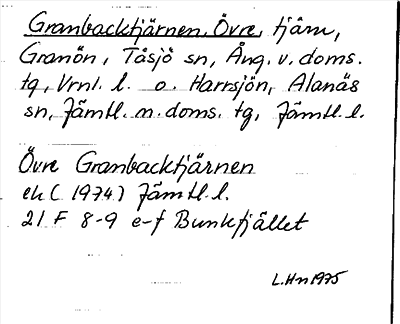 Granbacktjärnen, Övre, tjärn,
Granön, Tåsjö sn, Ång. v. doms.
tg, Vrnl. l. o. Harrsjön, Alanäs
sn, Jämtl. n. doms. tg, Jämtl. l.
Övre Granbacktjärnen
ek ( 1974) Jämtl. l.
21 F 8-9 e-f Bunkfjället
L.Hn 1975